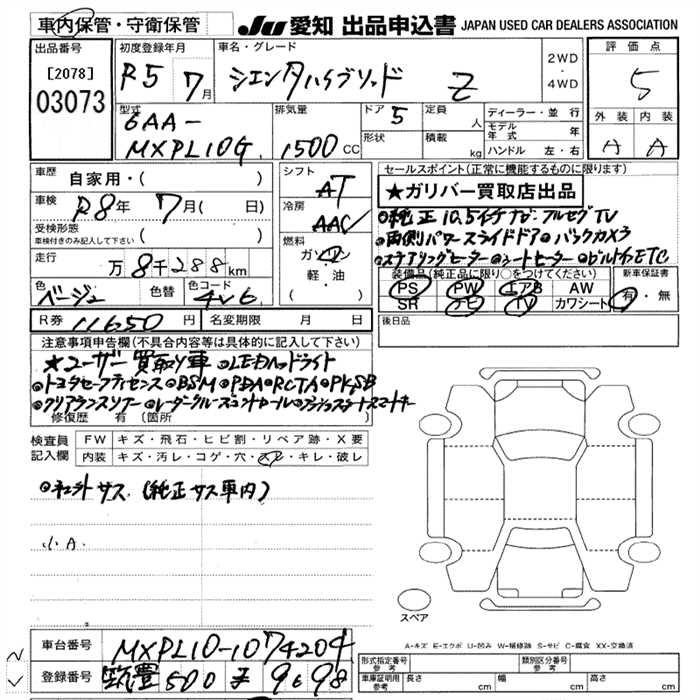 車内保管・守衛保管
JU 愛知 出品申込書 JAPAN USED CAR DEALERS ASSOCIATION
出品番号
[2078]
03073
初度登録年月
R5 7月
車名・グレード
シエンタハイブリッド Z
2WD
・
4WD
評価点
5
外装 内装
A A
型式
6AA-
MXPL10G
排気量
1500 CC
ドア 5
形状
定員 人
積載 kg
ディーラー・並行
モデル年式 年
ハンドル 左・右
車歴 自家用・( )
車検 R8年 7月( 日)
受検形態
車検付きのみ記入して下さい ( )
走行 万 8千288km
色 ベージュ 色替 色コード 4V6
R券 11650円 名変期限 月 日
シフト
AT
冷房
AAC
燃料
ガソリン
軽・油
( )
セールスポイント(正常に機能するものに限ります)
★ガリバー買取店出品
●純正10.5インチナビ・フルセグTV
●両側パワースライドドア●バックカメラ
●ステアリングヒーター●シートヒーター●ビルトインETC
装備品(純正品に限り○をつけてください)
PS PW エアB AW
SR ナビ TV カワシート
新車保証書
有・無
後日品
注意事項申告欄(不具合内容等は具体的に記入して下さい)
★ユーザー買取り車 ●LEDヘッドライト
●トヨタセーフティセンス●BSM●PDA●RCTA●PKSB
●クリアランスソナー●レーダークルーズコントロール●プッシュスタートスマートキー
修復歴 有(箇所
検査員
記入欄
FW キズ・飛石・ヒビ割・リペア跡・X要
内装 キズ・汚レ・コゲ・穴・スレ・キレ・破レ
サス(純正サス車内)
小A.
スペア
A-キズ E-エクボ U-凹み W-補修跡 S-サビ C-腐食 XX-交換済
車台番号 MXPL10-1074204
登録番号 500 9698
形式指定番号
参考
類別区分番号
参考
車庫証明用
参考
長さ cm 幅 cm 高さ cm